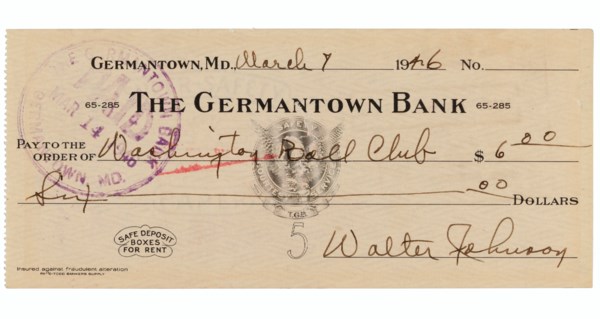 GERMANTOWN, MD., March 7 1946 No.
65-285 THE GERMANTOWN BANK 65-285
PAY TO THE ORDER OF Washington Ball Club $ 6 00
Six 00 DOLLARS
GERMANTOWN BANK
MAR 14
GERMANTOWN, MD.
T.G.B.
SAFE DEPOSIT
BOXES
FOR RENT
5
Walter Johnson
Insured against fraudulent alteration